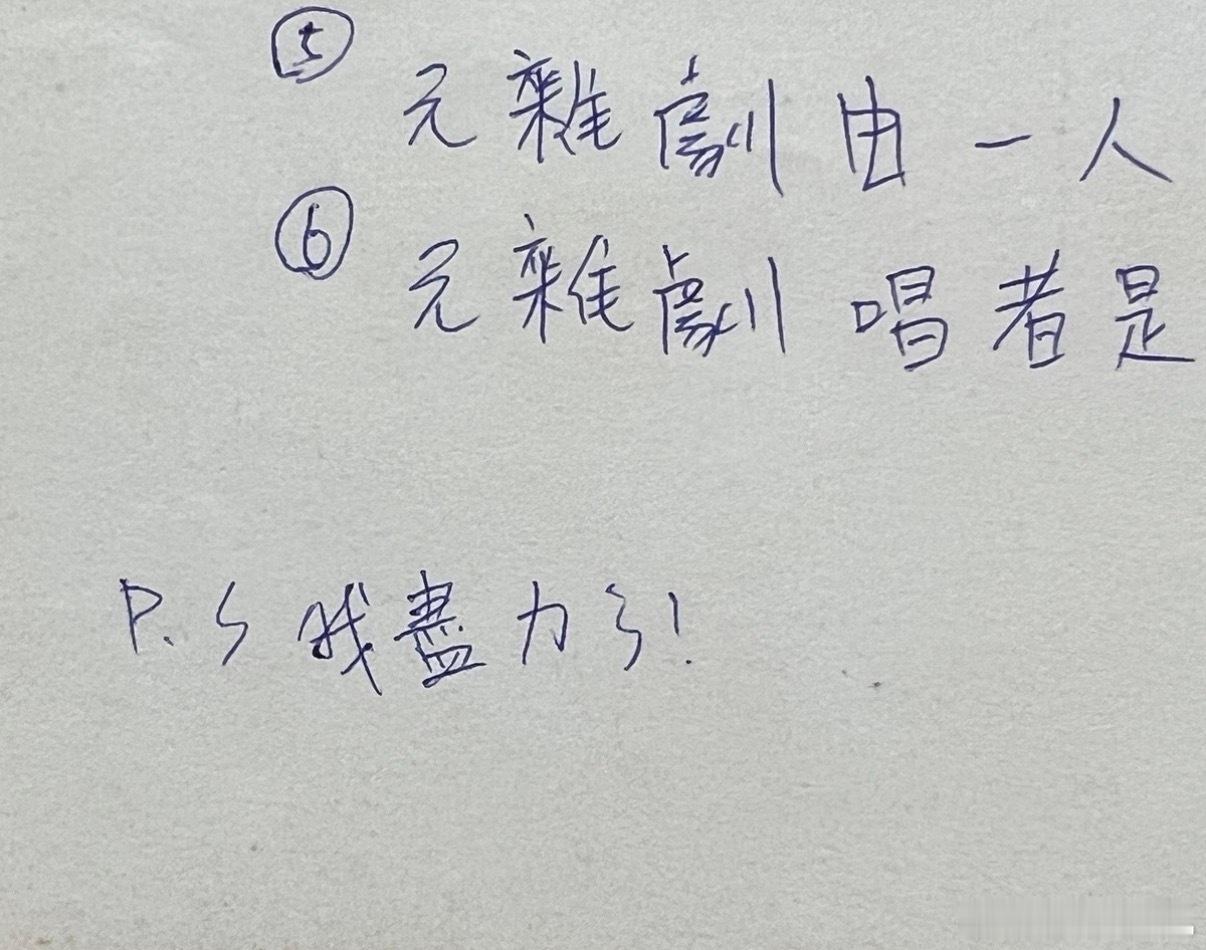 ⑤ 元雜劇由一人
⑥ 元雜劇唱者是
P.S 我盡力了!